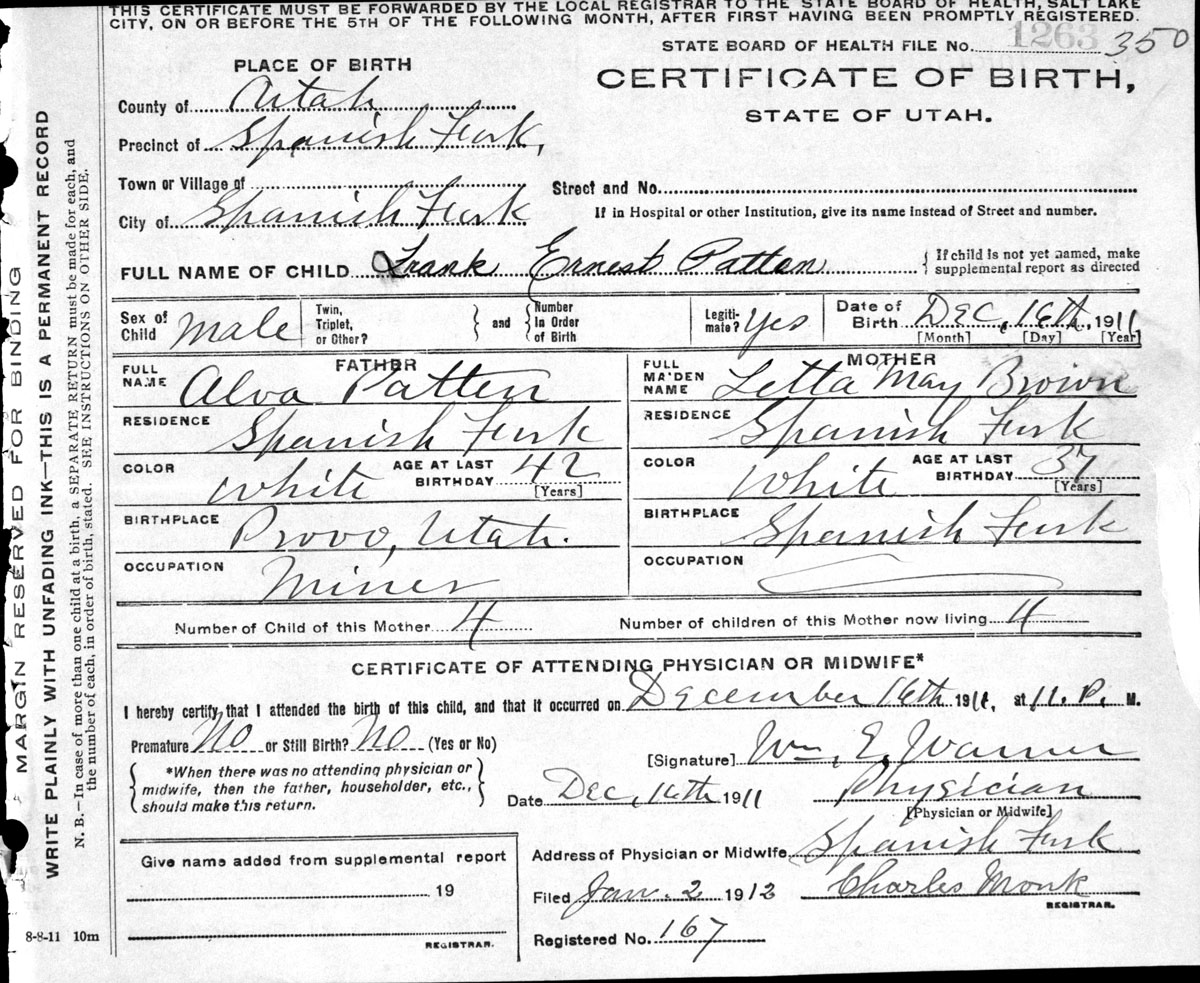 THIS CERTIFICATE MUST BE FORWARDED BY THE LOCAL REGISTRAR TO THE STATE BOARD OF HEALTH, SALT LAKE
CITY, ON OR BEFORE THE 5TH OF THE FOLLOWING MONTH, AFTER FIRST HAVING BEEN PROMPTLY REGISTERED.
STATE BOARD OF HEALTH FILE No. 1263 350
PLACE OF BIRTH
CERTIFICATE OF BIRTH,
STATE OF UTAH.
County of Utah
Precinct of Spanish Fork,
Town or Village of
Street and No.
City of Spanish Fork
If in Hospital or other Institution, give its name instead of Street and number.
FULL NAME OF CHILD Frank Ernest Patten
{ If child is not yet named, make
supplemental report as directed
Sex of Child Male
Twin, Triplet, or Other? } and { Number In Order of Birth
Legiti-mate? Yes
Date of Birth Dec, 16th, 1911
[Month] [Day] [Year]
FATHER
MOTHER
FULL NAME Alva Patten
FULL MAIDEN NAME Letta May Brown
RESIDENCE Spanish Fork
RESIDENCE Spanish Fork
COLOR White AGE AT LAST BIRTHDAY 42 [Years]
COLOR White AGE AT LAST BIRTHDAY 37 [Years]
BIRTHPLACE Provo, Utah.
BIRTHPLACE Spanish Fork
OCCUPATION Miner
OCCUPATION
Number of Child of this Mother 4
Number of children of this Mother now living 4
CERTIFICATE OF ATTENDING PHYSICIAN OR MIDWIFE*
I hereby certify that I attended the birth of this child, and that it occurred on December 16th 1911, at 11. P. M.
Premature No or Still Birth? No (Yes or No)
[Signature] Wm. E. Warner
{ *When there was no attending physician or
midwife, then the father, householder, etc.,
should make this return. }
Date Dec, 16th 1911
Physician
[Physician or Midwife]
Give name added from supplemental report
Address of Physician or Midwife Spanish Fork
19
Filed Jan. 2 1912 Charles Monk
REGISTRAR.
Registered No. 167
REGISTRAR.
8-8-11 10m
MARGIN RESERVED FOR BINDING
WRITE PLAINLY WITH UNFADING INK—THIS IS A PERMANENT RECORD
N. B.—In case of more than one child at a birth, a SEPARATE RETURN must be made for each, and
the number of each, in order of birth, stated. SEE INSTRUCTIONS ON OTHER SIDE.